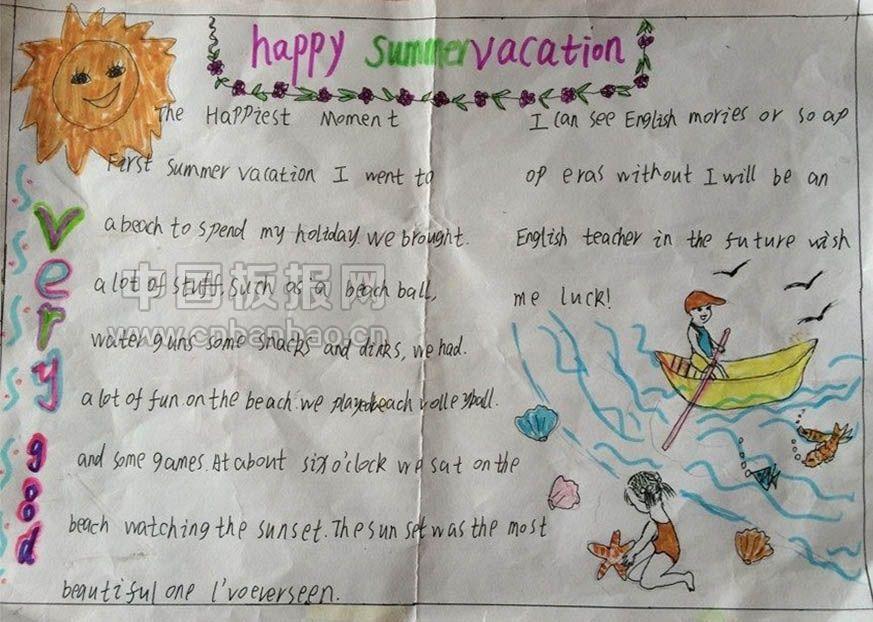 happy summer vacation
The Happiest Moment
First summer vacation I went to
a beach to spend my holiday. we brought.
a lot of stuff, such as a beach ball,
water guns some snacks and dinks, we had.
a lot of fun. on the beach. we played beach volleyball.
and some games. At about six o'clock we sat on the
beach watching the sunset. The sun set was the most
beautiful one I'voeverseen.
I can see English mories or so ap
op eras without I will be an
English teacher in the future wish
me luck!
very good
中国板报网
www.cnbanbao.cn